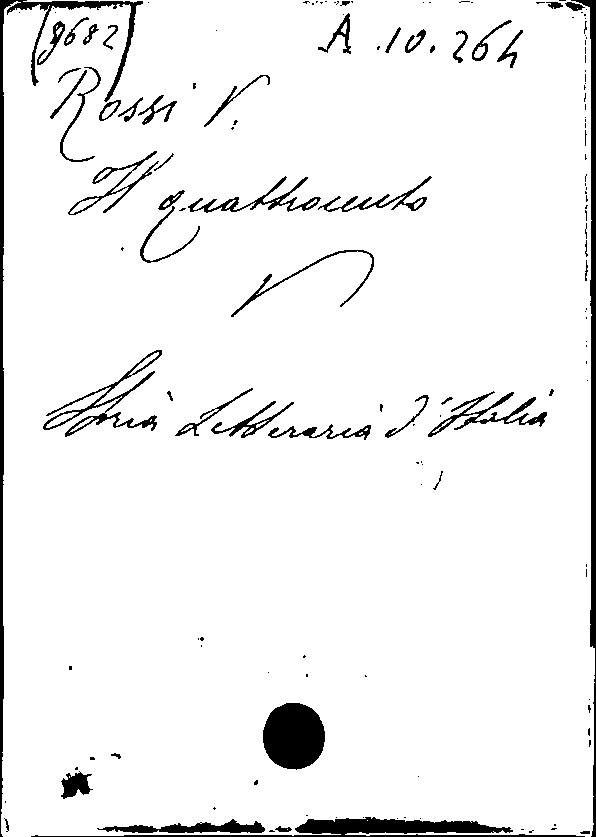 9682 A.10.264
Rossi V.
Il quattrocento
Storia Letteraria d'Italia